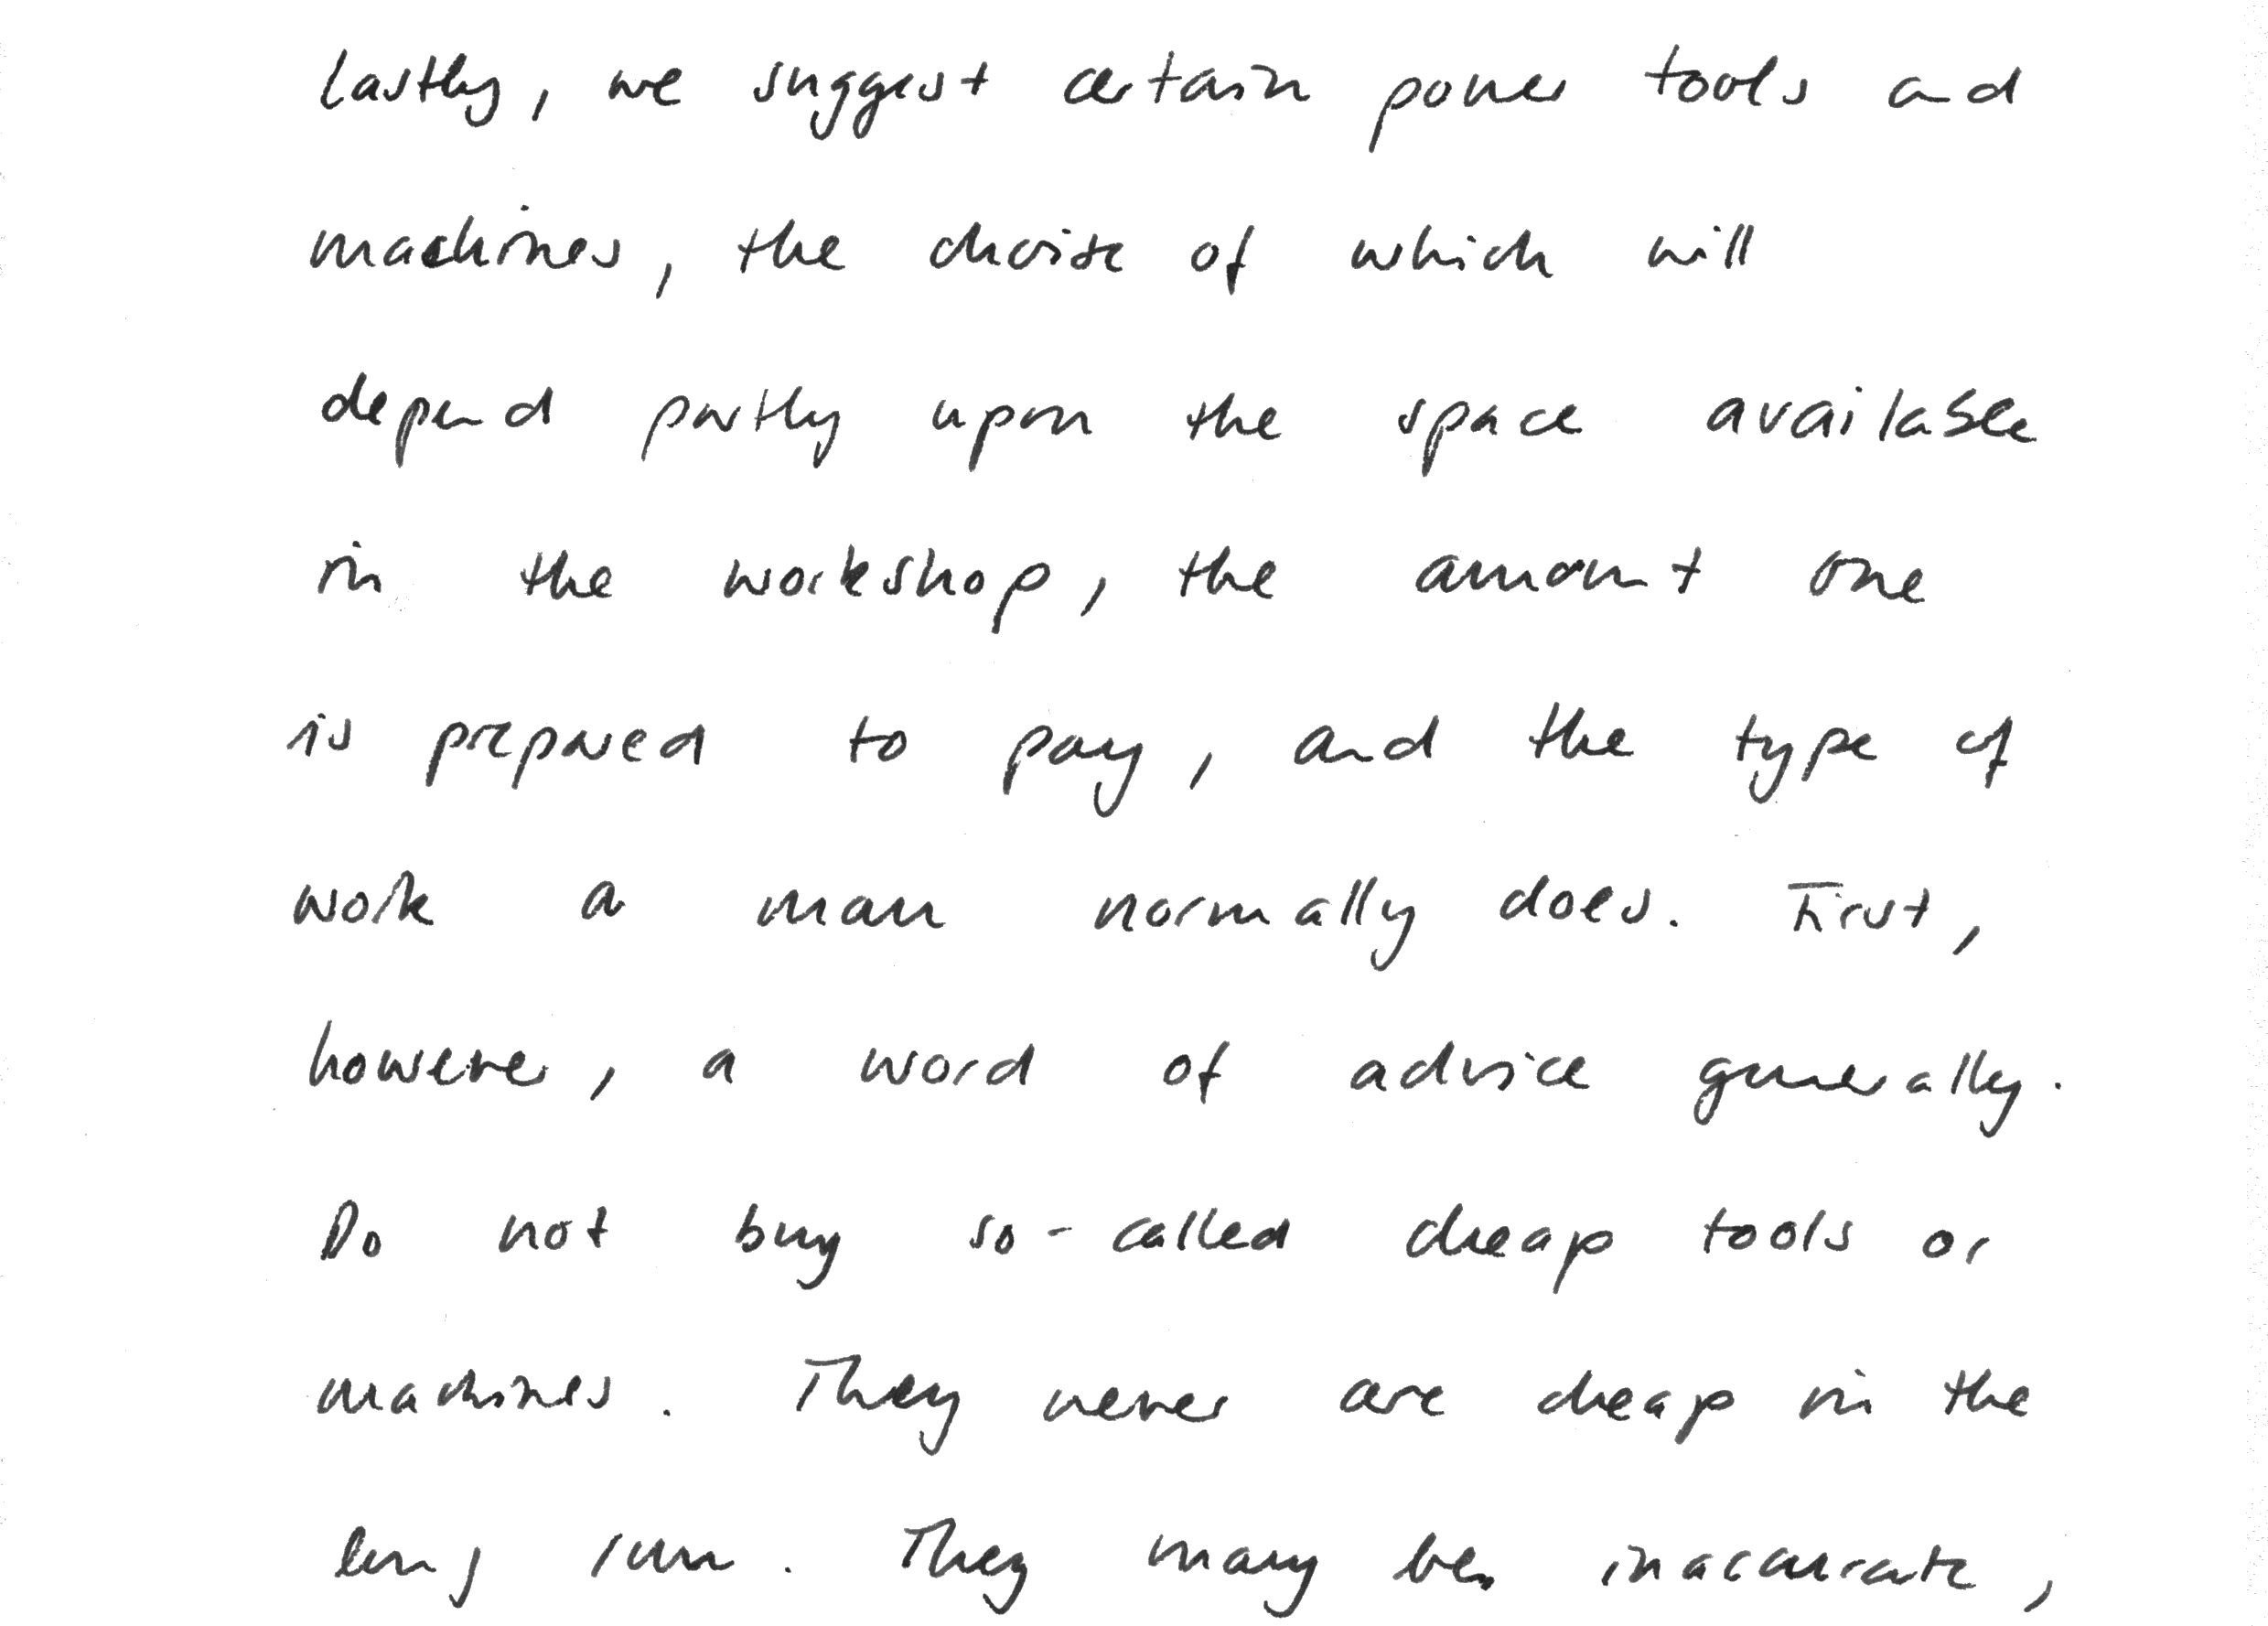 Lastly, we suggest certain power tools and
machines, the choice of which will
depend partly upon the space available
in the workshop, the amount one
is prepared to pay, and the type of
work a man normally does. First,
however, a word of advice generally.
Do not buy so-called cheap tools or
machines. They never are cheap in the
long run. They may be inaccurate,